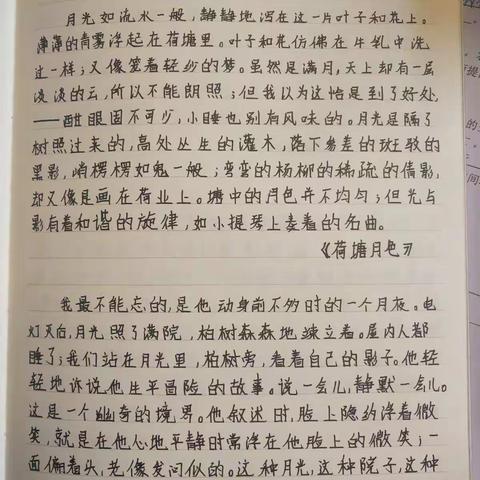 月光如流水一般，静静地泻在这一片叶子和花上。
薄薄的青雾浮起在荷塘里。叶子和花仿佛在牛乳中洗
过一样；又像笼着轻纱的梦。虽然是满月，天上却有一层
淡淡的云，所以不能朗照；但我以为这恰是到了好处
——酣眠固不可少，小睡也别有风味的。月光是隔了
树照过来的，高处丛生的灌木，落下参差的斑驳的
黑影，峭楞楞如鬼一般；弯弯的杨柳的稀疏的倩影，
却又像是画在荷叶上。塘中的月色并不均匀；但光与
影有着和谐的旋律，如小提琴上奏着的名曲。
《荷塘月色》
我最不能忘的，是他动身前不多时的一个月夜。电
灯灭后，月光照了满院，柏树森森地竦立着。屋内人都
睡了；我们站在月光里，柏树旁，看着自己的影子。他轻
轻地诉说他生平冒险的故事。说一会儿，静默一会儿。
这是一个幽奇的境界。他叙述时，脸上隐约浮着微
笑，就是在他心地平静时常浮在他脸上的微笑；一
面偏着头，老像发问似的。这种月光，这种院子，这种